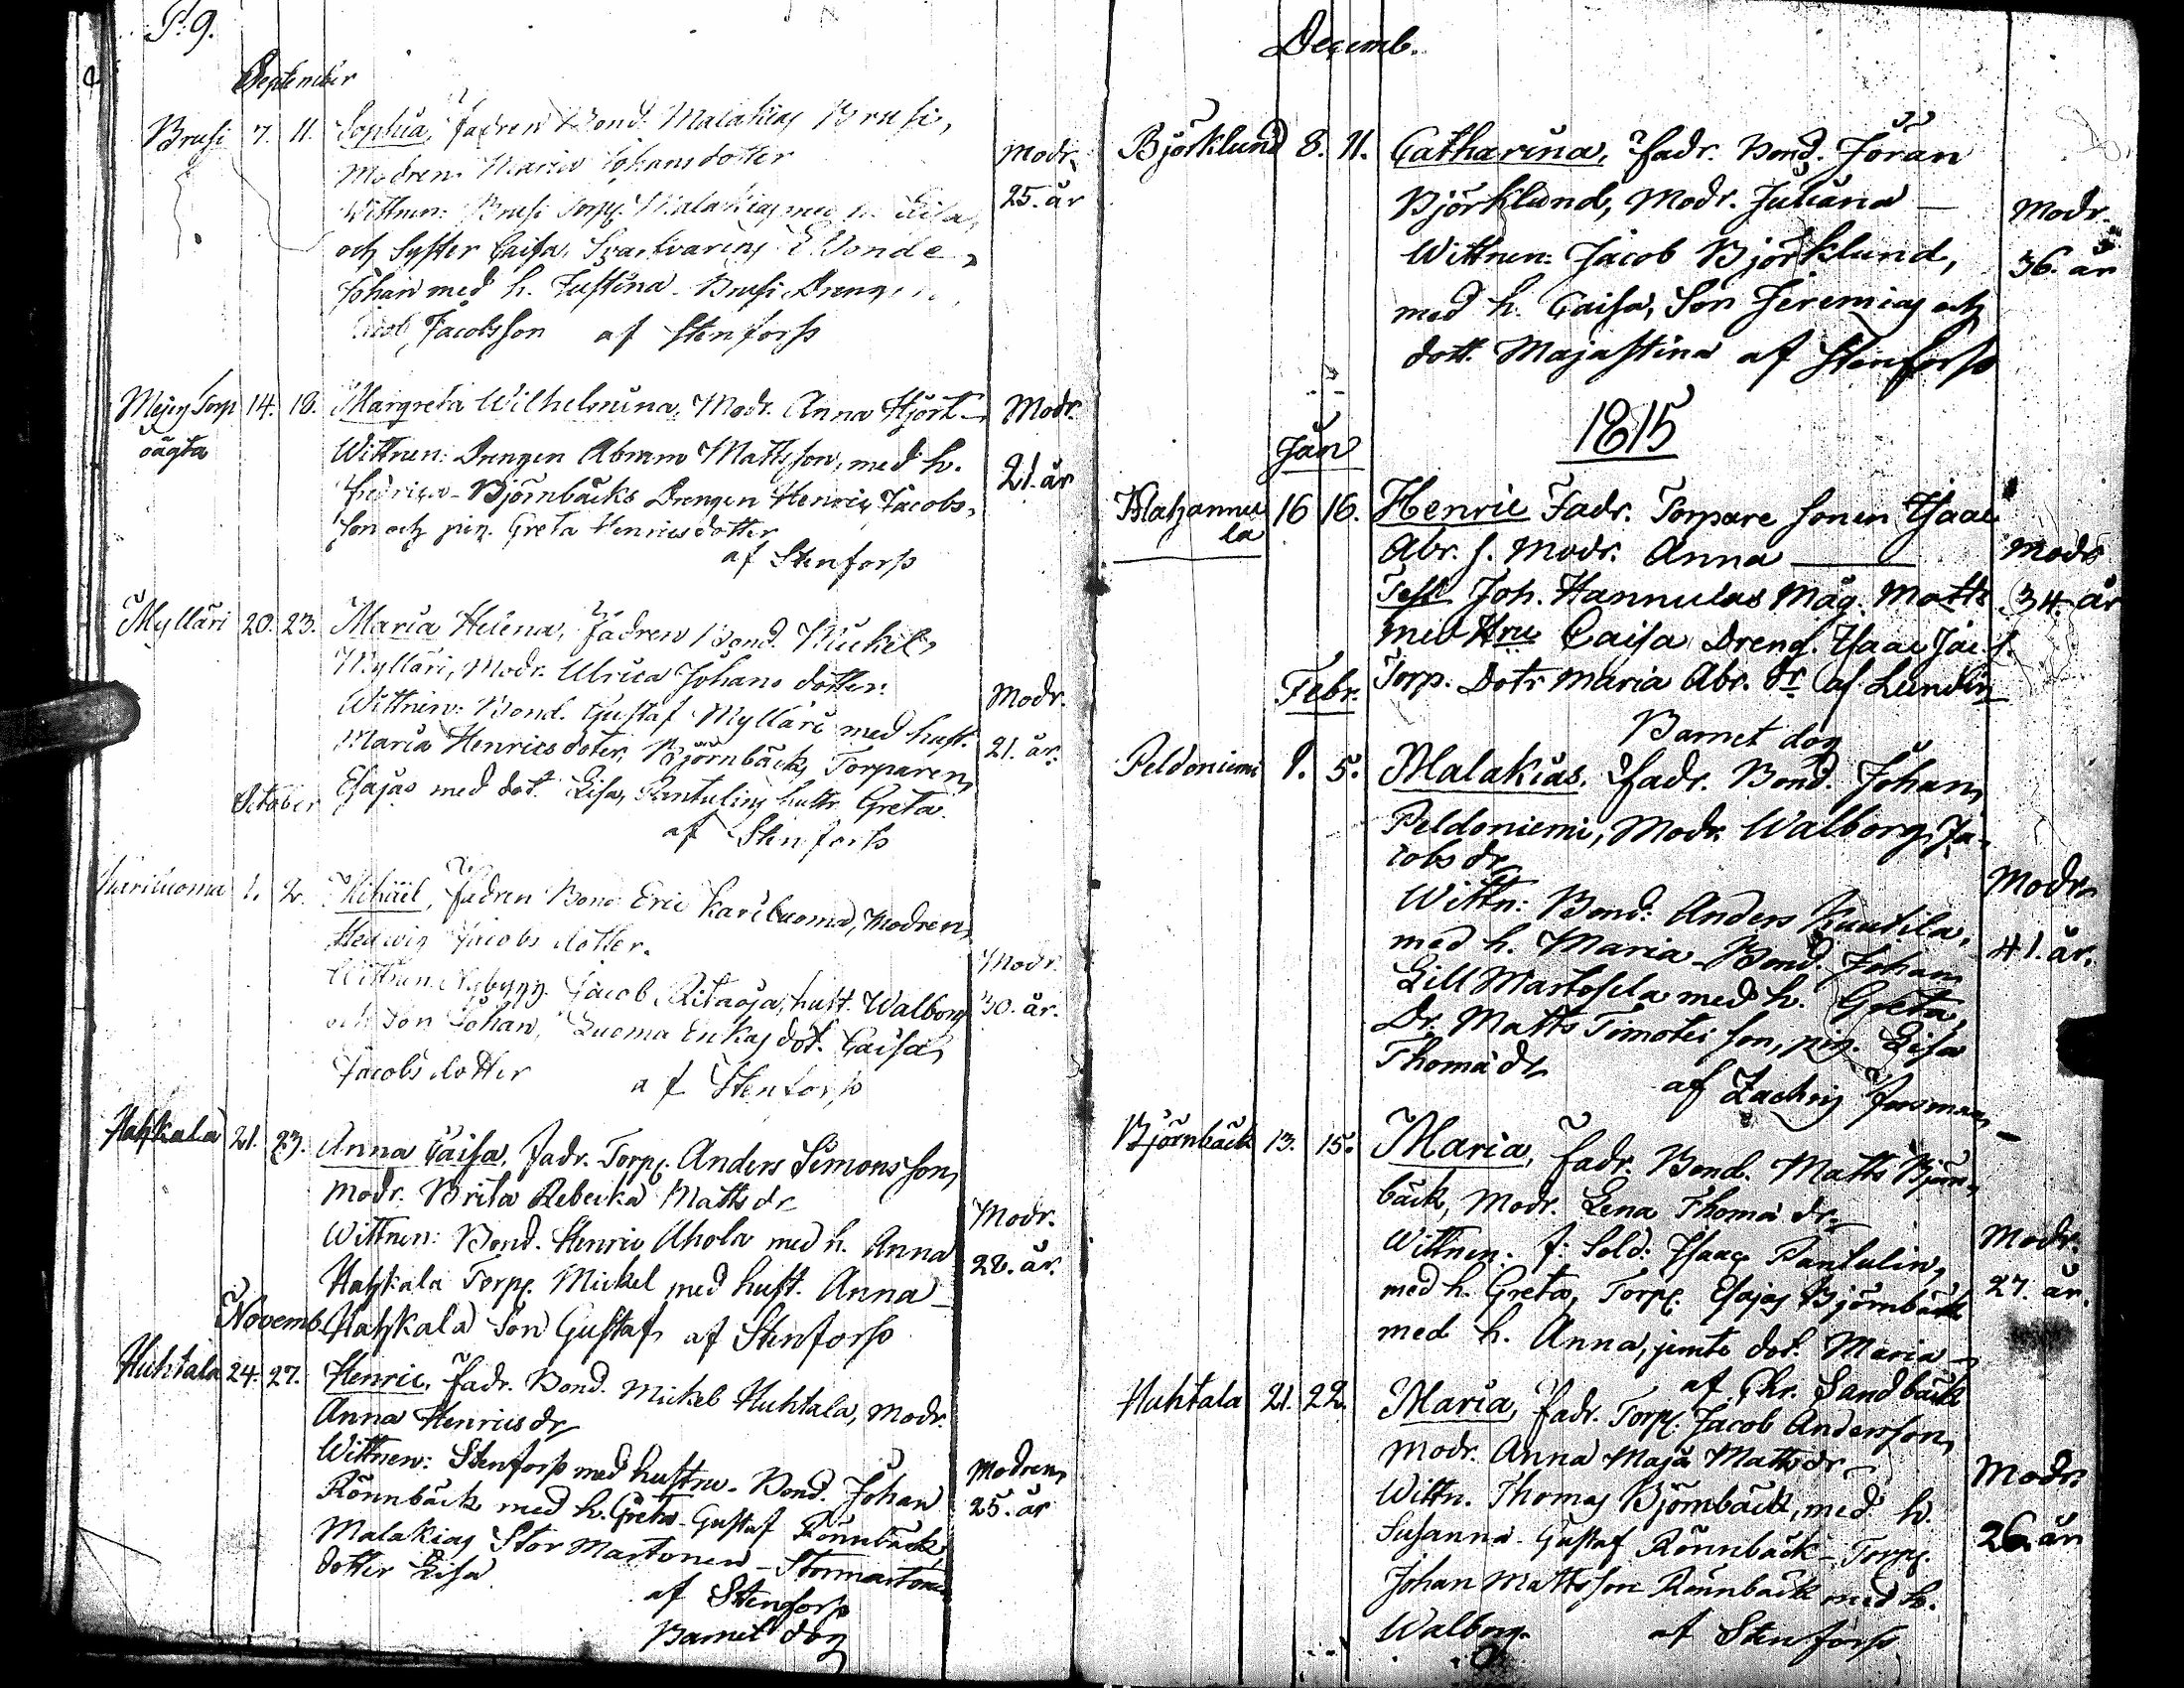 P. 9.
September
Brusi 7. 11. Sophia, fadren Bond. Malakias Brusi,
Modren Maria Johansdotter
Modr. 25. år
Wittnen: Brusi Torp. Malakias med h. Lisa,
och Syster Caisa,
Johan med h. Justina - Brusi Dreng
Jacob Jacobsson af Stenforss
Torp oägta 14. 18. Margreta Wilhelmina, Modr. Anna Hjort
Modr. 21. år
Wittnen: Drengen Abram Mattsson, med h.
Fredrica - Björnbäcks Drengen Henric Jacobs
son och pig. Greta Henricsdotter
af Stenforss
Mylläri 20. 23. Maria Helena, fadren Bond. Mickel
Mylläri, Modr. Ulrica Johans dotter
Modr. 21. år.
Wittnen: Bond. Gustaf Mylläri med hust.
Maria Henrics doter, Björnbäcks Torparen
Esajas med dot. Lisa, Pantulins hustr. Greta.
af Stenforss
October
Kariluoma 1. 2. Michäel, fadren Bond Eric Kariluoma, Modren
Hedwig Jacobs dotter.
Modr. 30. år.
Wittnen. Nybygg. Jacob Ritaoja, hust. Walborg
och Son Johan, Luoma Erikas dot. Caisa
Jacobs dotter af Stenforss
Hahkala 21. 23. Anna Caisa, fadr. Torp. Anders Simonsson,
Modr. Brita Rebecka Matts dr
Modr. 28. år.
Wittnen: Bond. Henric Ahola med h. Anna
Hahkala Torp. Mickel med hust. Anna
Hahkala Son Gustaf af Stenforss
Novemb.
Huhtala 24. 27. Henric, fadr. Bond. Mickel Huhtala, Modr.
Anna Henrics dr
Modren 25. år
Wittnen: Stenforss med hustru - Bond. Johan
Rönnback med h. Greta - Gustaf Rönnbäck
Malakias Stor Martonen - Stormartonen
dotter Lisa
af Stenforss
Barnet dog
Decemb.
Björklund 8. 11. Catharina, fadr. Bond. Jöran
Björklund, Modr. Juliana
Modr. 36. år
Wittnen: Jacob Björklund,
med h. Caisa, Son Jeremias och
dott. Majastina af Stenforss
1815
Jan
16 16. Henric Fadr. Torpare sonen Isaac
Abr. s. Modr. Anna
Modr 34 år
Test Joh. Hannulas Måg. Matts
med Hru Caisa Dreng. Isaac Jac. s.
Torp. Dotr Maria Abr. dr af Lundin
Barnet dog
Febr.
Peldoniemi 1. 5. Malakias, fadr. Bond. Johan
Peldoniemi, Modr. Walborg Ja-
cobs dr
Modr 41. år.
Wittn: Bond: Anders Kuutila,
med h. Maria - Bond. Johan
Lill Martosela med h. Greta,
Dr. Matts Timotei son, pig. Lisa
Thomä dr
af Zachris
Björnbäck 13. 15. Maria, fadr. Bond. Matts Björn
bäck, Modr. Lena Thomä dr
Modr. 27. år.
Wittnen. f. Sold: Isaac Pantulin,
med h. Greta, Torp. Esajas Björnbäck
med h. Anna, jemte dot. Maria
af Chr. Sandbäck
Huhtala 21. 22. Maria, fadr. Torp. Jacob Andersson,
Modr. Anna Maja Matts dr
Modr 26. år
Wittn. Thomas Björnbäck, med h.
Susanna - Gustaf Rönnbäck - Torp.
Johan Mattsson Rönnback med h.
Walborg. af Stenforss